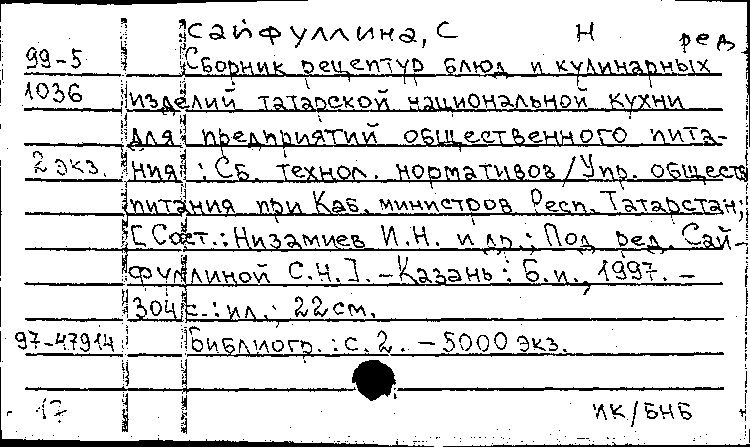 Сайфуллина, С Н ред.
99-5 Сборник рецептур блюд и кулинарных
1036 изделий татарской национальной кухни
для предприятий общественного пита-
2 экз. ния : Сб. технол. нормативов / Упр. обществ
питания при Каб. министров Респ. Татарстан;
[Сост.: Низамиев И.Н. и др.; Под ред. Сай-
фуллиной С.Н.]. - Казань : Б.и., 1997. -
304 с. : ил.; 22 см.
97-47914 Библиогр. : с. 2. - 5000 экз.
17 ИК/БНБ